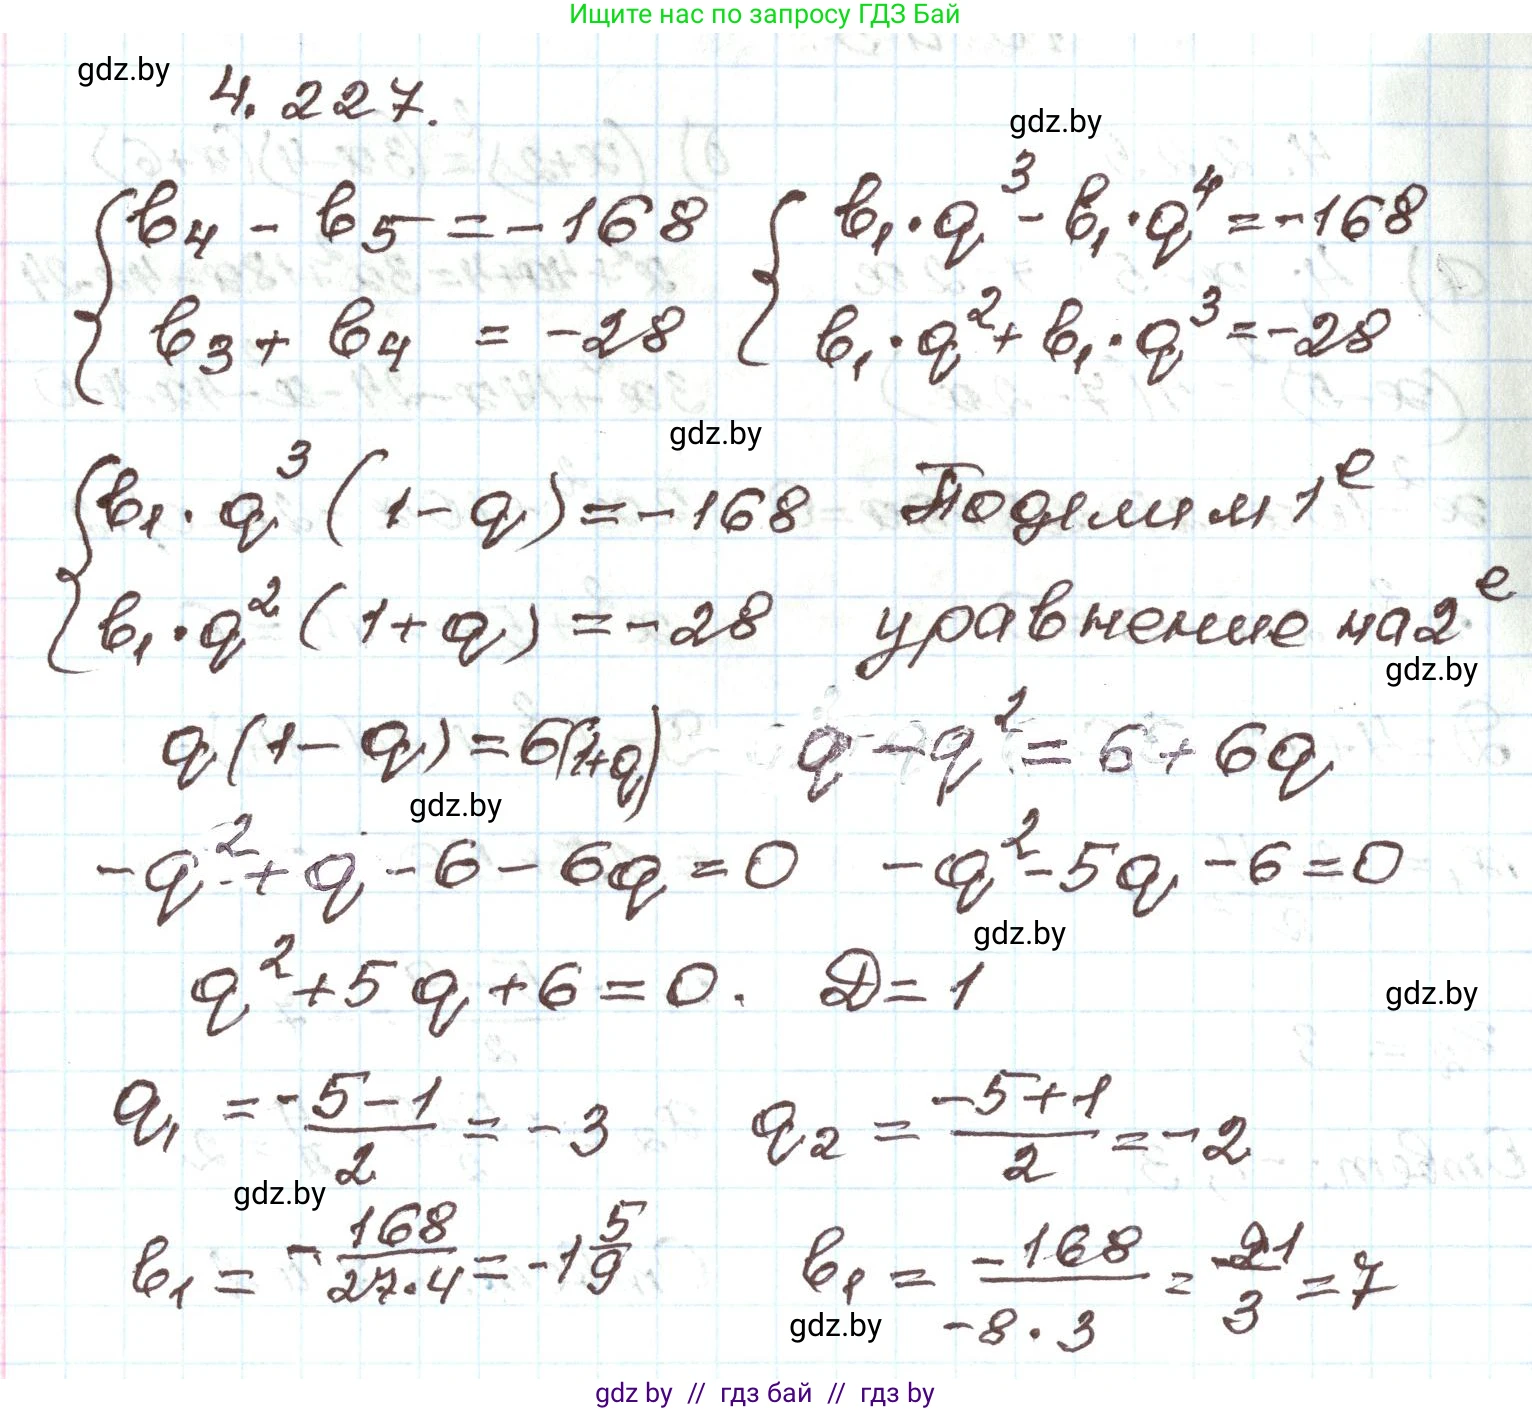 Ищите нас по запросу ГДЗ Бай
gdz.by
4.227.
gdz.by
b₄ - b₅ = -168
b₃ + b₄ = -28
b₁·q³ - b₁·q⁴ = -168
b₁·q² + b₁·q³ = -28
gdz.by
b₁·q³(1-q) = -168 Поделим 1е
b₁·q²(1+q) = -28 уравнение на 2е
gdz.by
q(1-q) = 6(1+q) q - q² = 6 + 6q
gdz.by
-q² + q - 6 - 6q = 0 -q² - 5q - 6 = 0
gdz.by
q² + 5q + 6 = 0. D = 1
gdz.by
q₁ = (-5-1)/2 = -3 q₂ = (-5+1)/2 = -2
gdz.by
b₁ = -168/(27·4) = -1 5/9 b₁ = -168/(-8·3) = -21/3 = 7
gdz.by
gdz by // гдз бай // гдз by